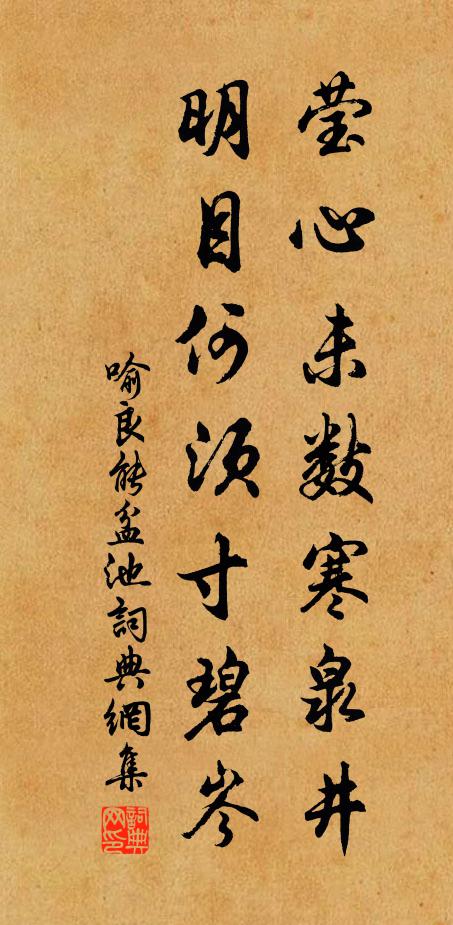 莹心未数寒泉井
明目何须寸碧岑
喻良能盆池詞典網集
詞典网印